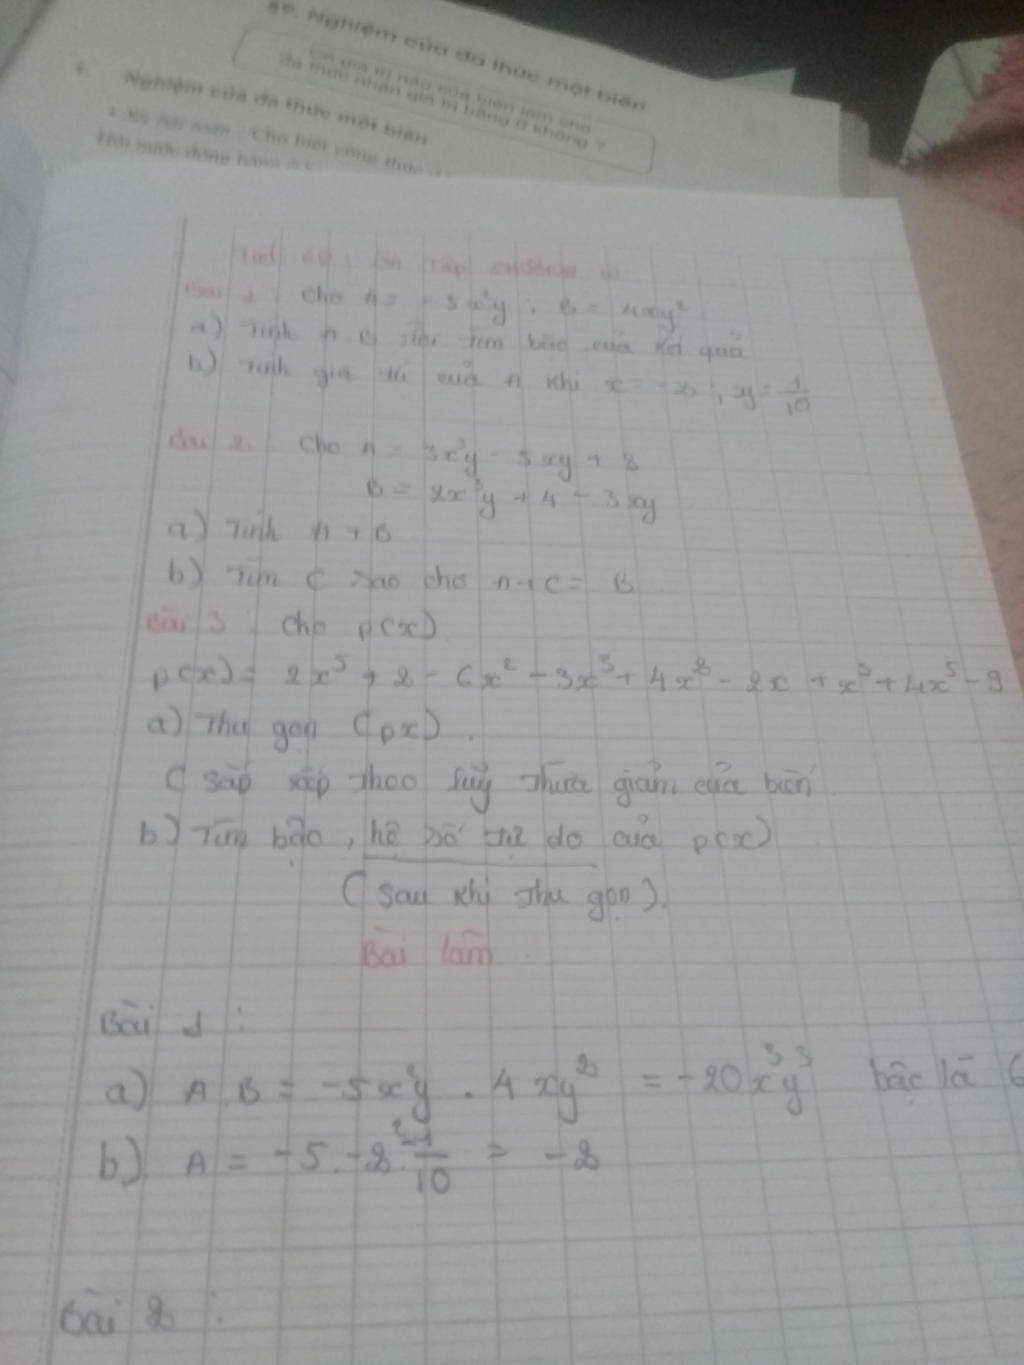 39. Nghiệm của đa thức một biến
Có giá trị nào của biến làm cho
đa thức nhận giá trị bằng 0 không ?
Nghiệm của đa thức một biến
Cho biết công thức
Bài 1 Cho A = -5x²y ; B = 4xy²
a) Tính A B rồi tìm bậc của kết quả
b) Tính giá trị của A khi x = -2 ; y = 1/10
Bài 2 Cho A = 3x²y - 5xy + 8
B = 2x²y + 4 - 3xy
a) Tính A + B
b) Tìm C sao cho A + C = B
Bài 3 : Cho p(x)
p(x) = 2x⁵ + 2 - 6x² - 3x³ + 4x² - 2x + x³ + 4x⁵ - 9
a) Thu gọn (px) .
( sắp xếp theo luỹ thừa giảm của biến .
b) Tìm bậc , hệ số tự do của p(x)
( sau khi thu gọn ).
Bài làm
Bài 1 :
a) A.B = -5x²y . 4xy² = -20x³y³ bậc là 6
b) A = -5.-2².1/10 = -2
Bài 2 :